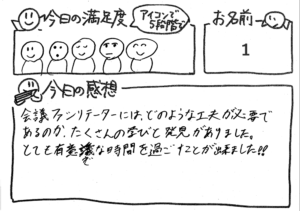 今日の満足度
アイコンで
5段階で
お名前
1
今日の感想
会議ファシリテーターには、どのような工夫が必要で
あるのか、たくさんの学びと発見がありました。
とても有意義な時間を過ごすことが出来ました!!